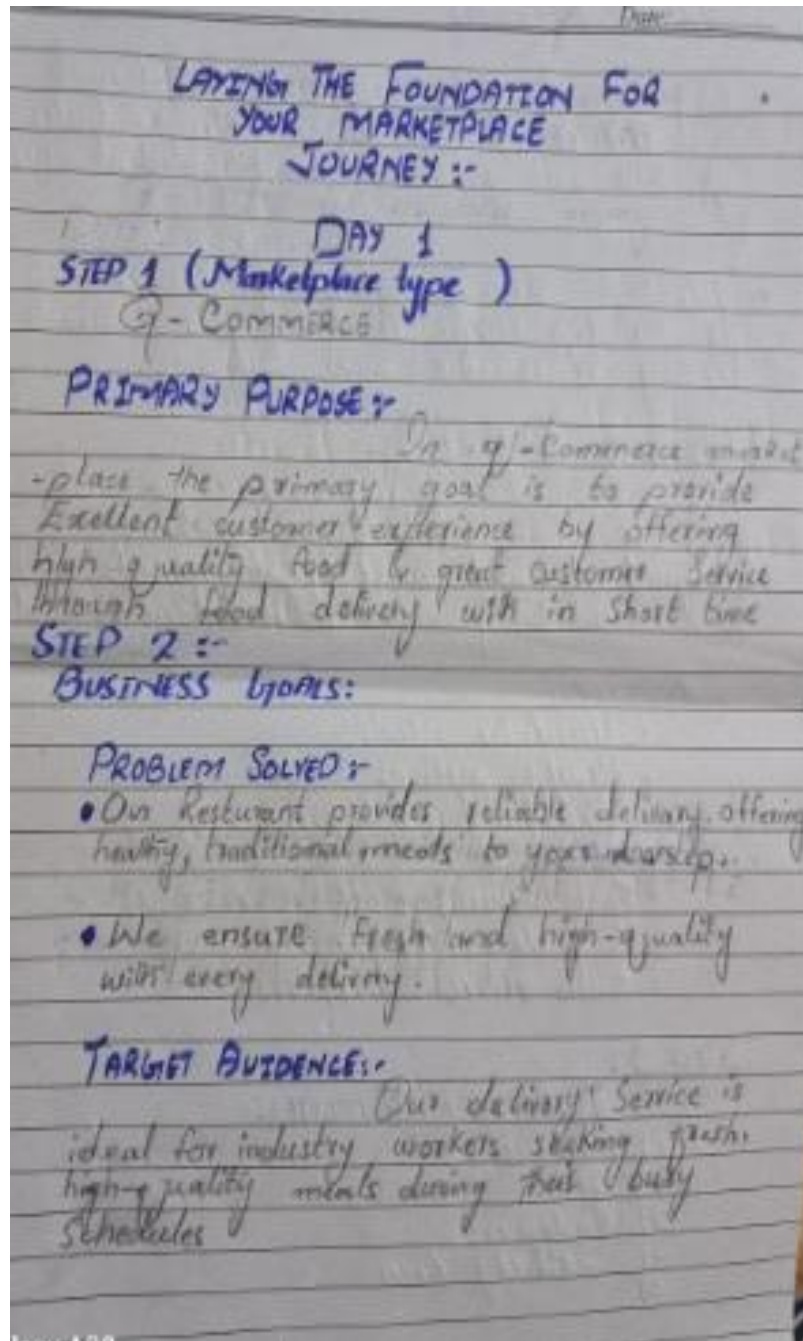 Date
LAYING THE FOUNDATION FOR
YOUR MARKETPLACE
JOURNEY :-
DAY 1
STEP 1 (Marketplace type )
Q - COMMERCE
PRIMARY PURPOSE :-
In q-Commerce market
-place the primary goal is to provide
Exellent customer experience by offering
high quality food & great customer service
through food delivery with in short time
STEP 2 :-
BUSINESS GOALS:
PROBLEM SOLVED :-
• Our Resturant provides reliable delivery offering
healthy, traditional meals to your
• We ensure fresh and high-quality
with every delivery.
TARGET AUIDENCE:-
Our delivery Service is
ideal for industry workers seeking fresh,
high-quality meals during their busy
Schedules